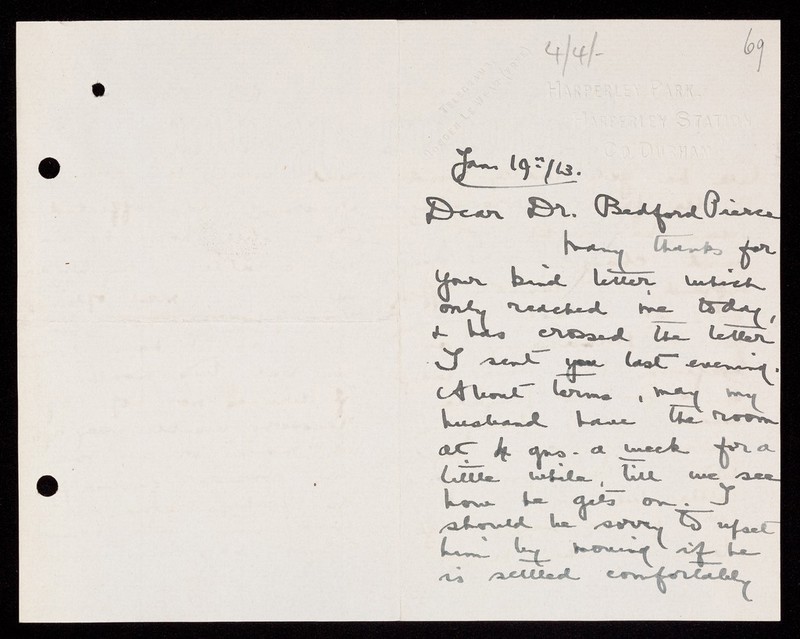 4/4/-
69
HARPERLEY PARK.
HARPERLEY STATION
CO. DURHAM
Jan 19th/13.
Dear Dr. Bedford Pierce
Many thanks for
your kind letter, which
only reached me today,
& has crossed the letter
I sent you last evening.
About terms, may my
husband have the room
at 4 gns. a week for a
little while, till we see
how he gets on. I
should be sorry to upset
him by moving if he
is settled comfortably